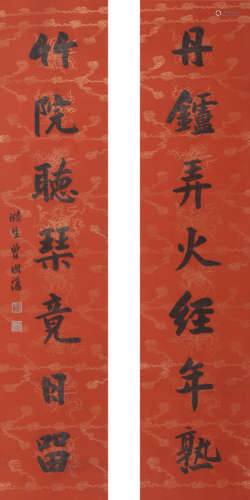 丹鑪弄火經年熟
竹院聽琹竟日留
滌生曾國藩